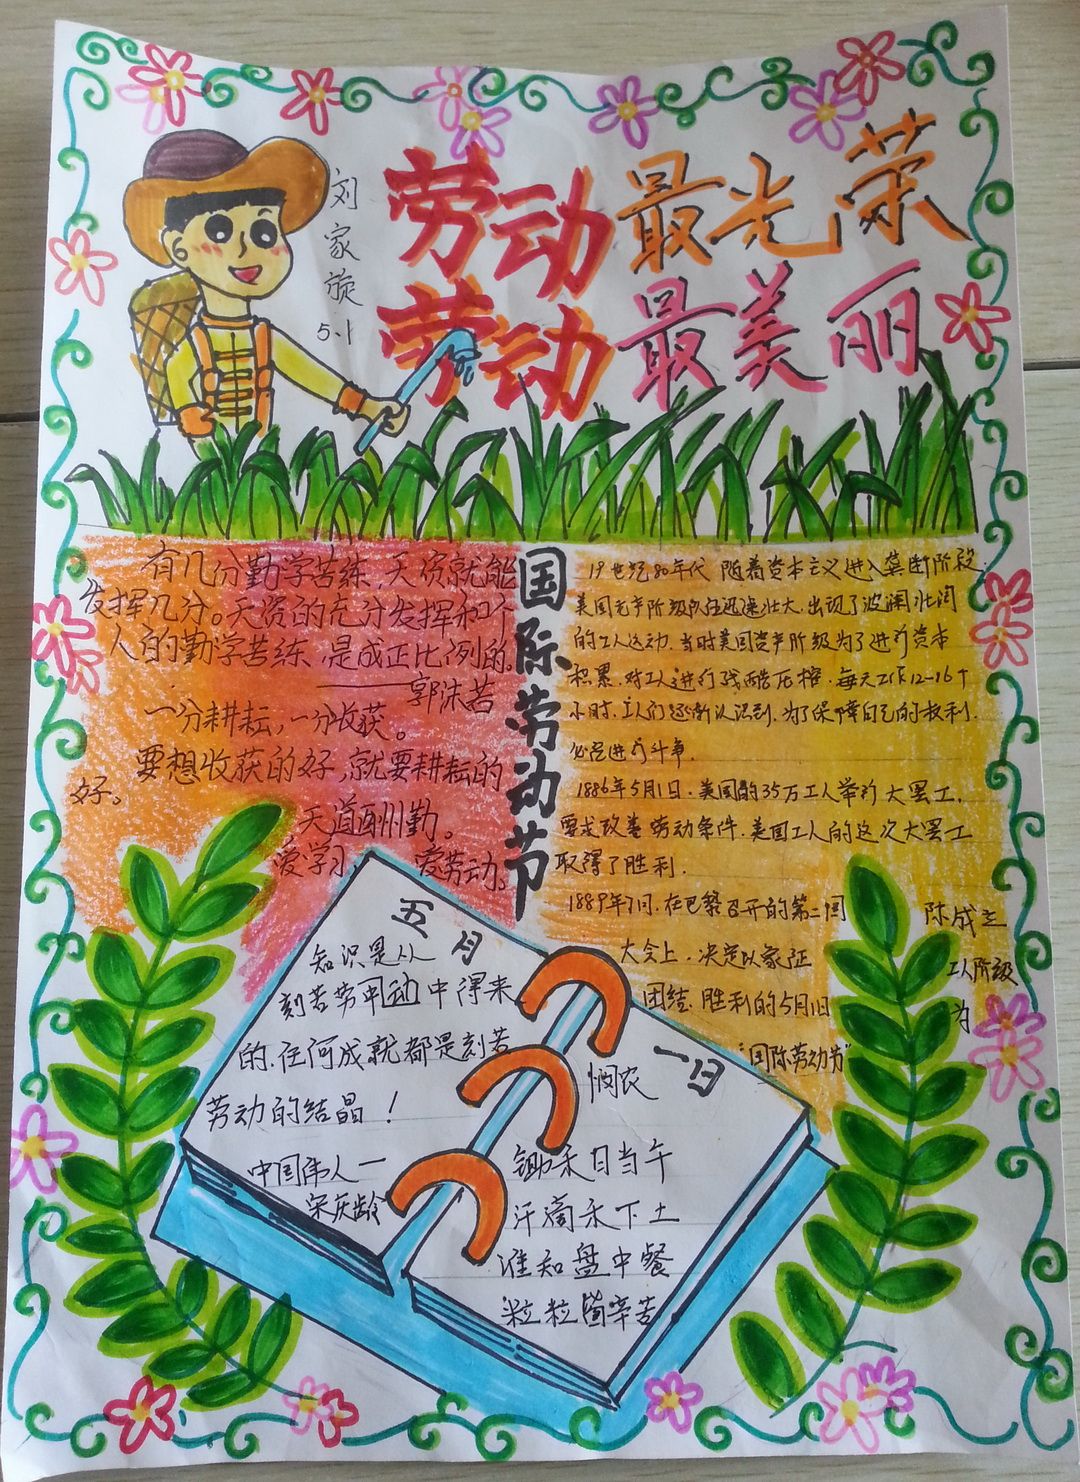 劳动最光荣
劳动最美丽
刘家旋
5.1
国际劳动节
有几份勤学苦练,天资就能
发挥几分。天资的充分发挥和个
人的勤学苦练,是成正比例的。
——郭沫若
一分耕耘,一分收获。
要想收获的好,就要耕耘的
好。
天道酬勤。
爱学习,爱劳动。
19世纪80年代 随着资本主义进入垄断阶段.
美国无产阶级队伍迅速壮大,出现了波澜壮阔
的工人运动.当时美国资产阶级为了进行资本
积累,对工人进行残酷压榨.每天工作12-16个
小时.工人们逐渐认识到.为了保障自己的权利.
必须进行斗争.
1886年5月1日.美国的35万工人举行大罢工.
要求改善劳动条件.美国工人的这次大罢工
取得了胜利.
1889年7月.在巴黎召开的第二国 陈成立
大会上.决定以象征 工人阶级
团结.胜利的5月1日 为
“国际劳动节”
五月
知识是从
刻苦劳动中得来
的.任何成就都是刻苦
劳动的结晶!
中国伟人—
宋庆龄
一日
悯农
锄禾日当午
汗滴禾下土
谁知盘中餐
粒粒皆辛苦